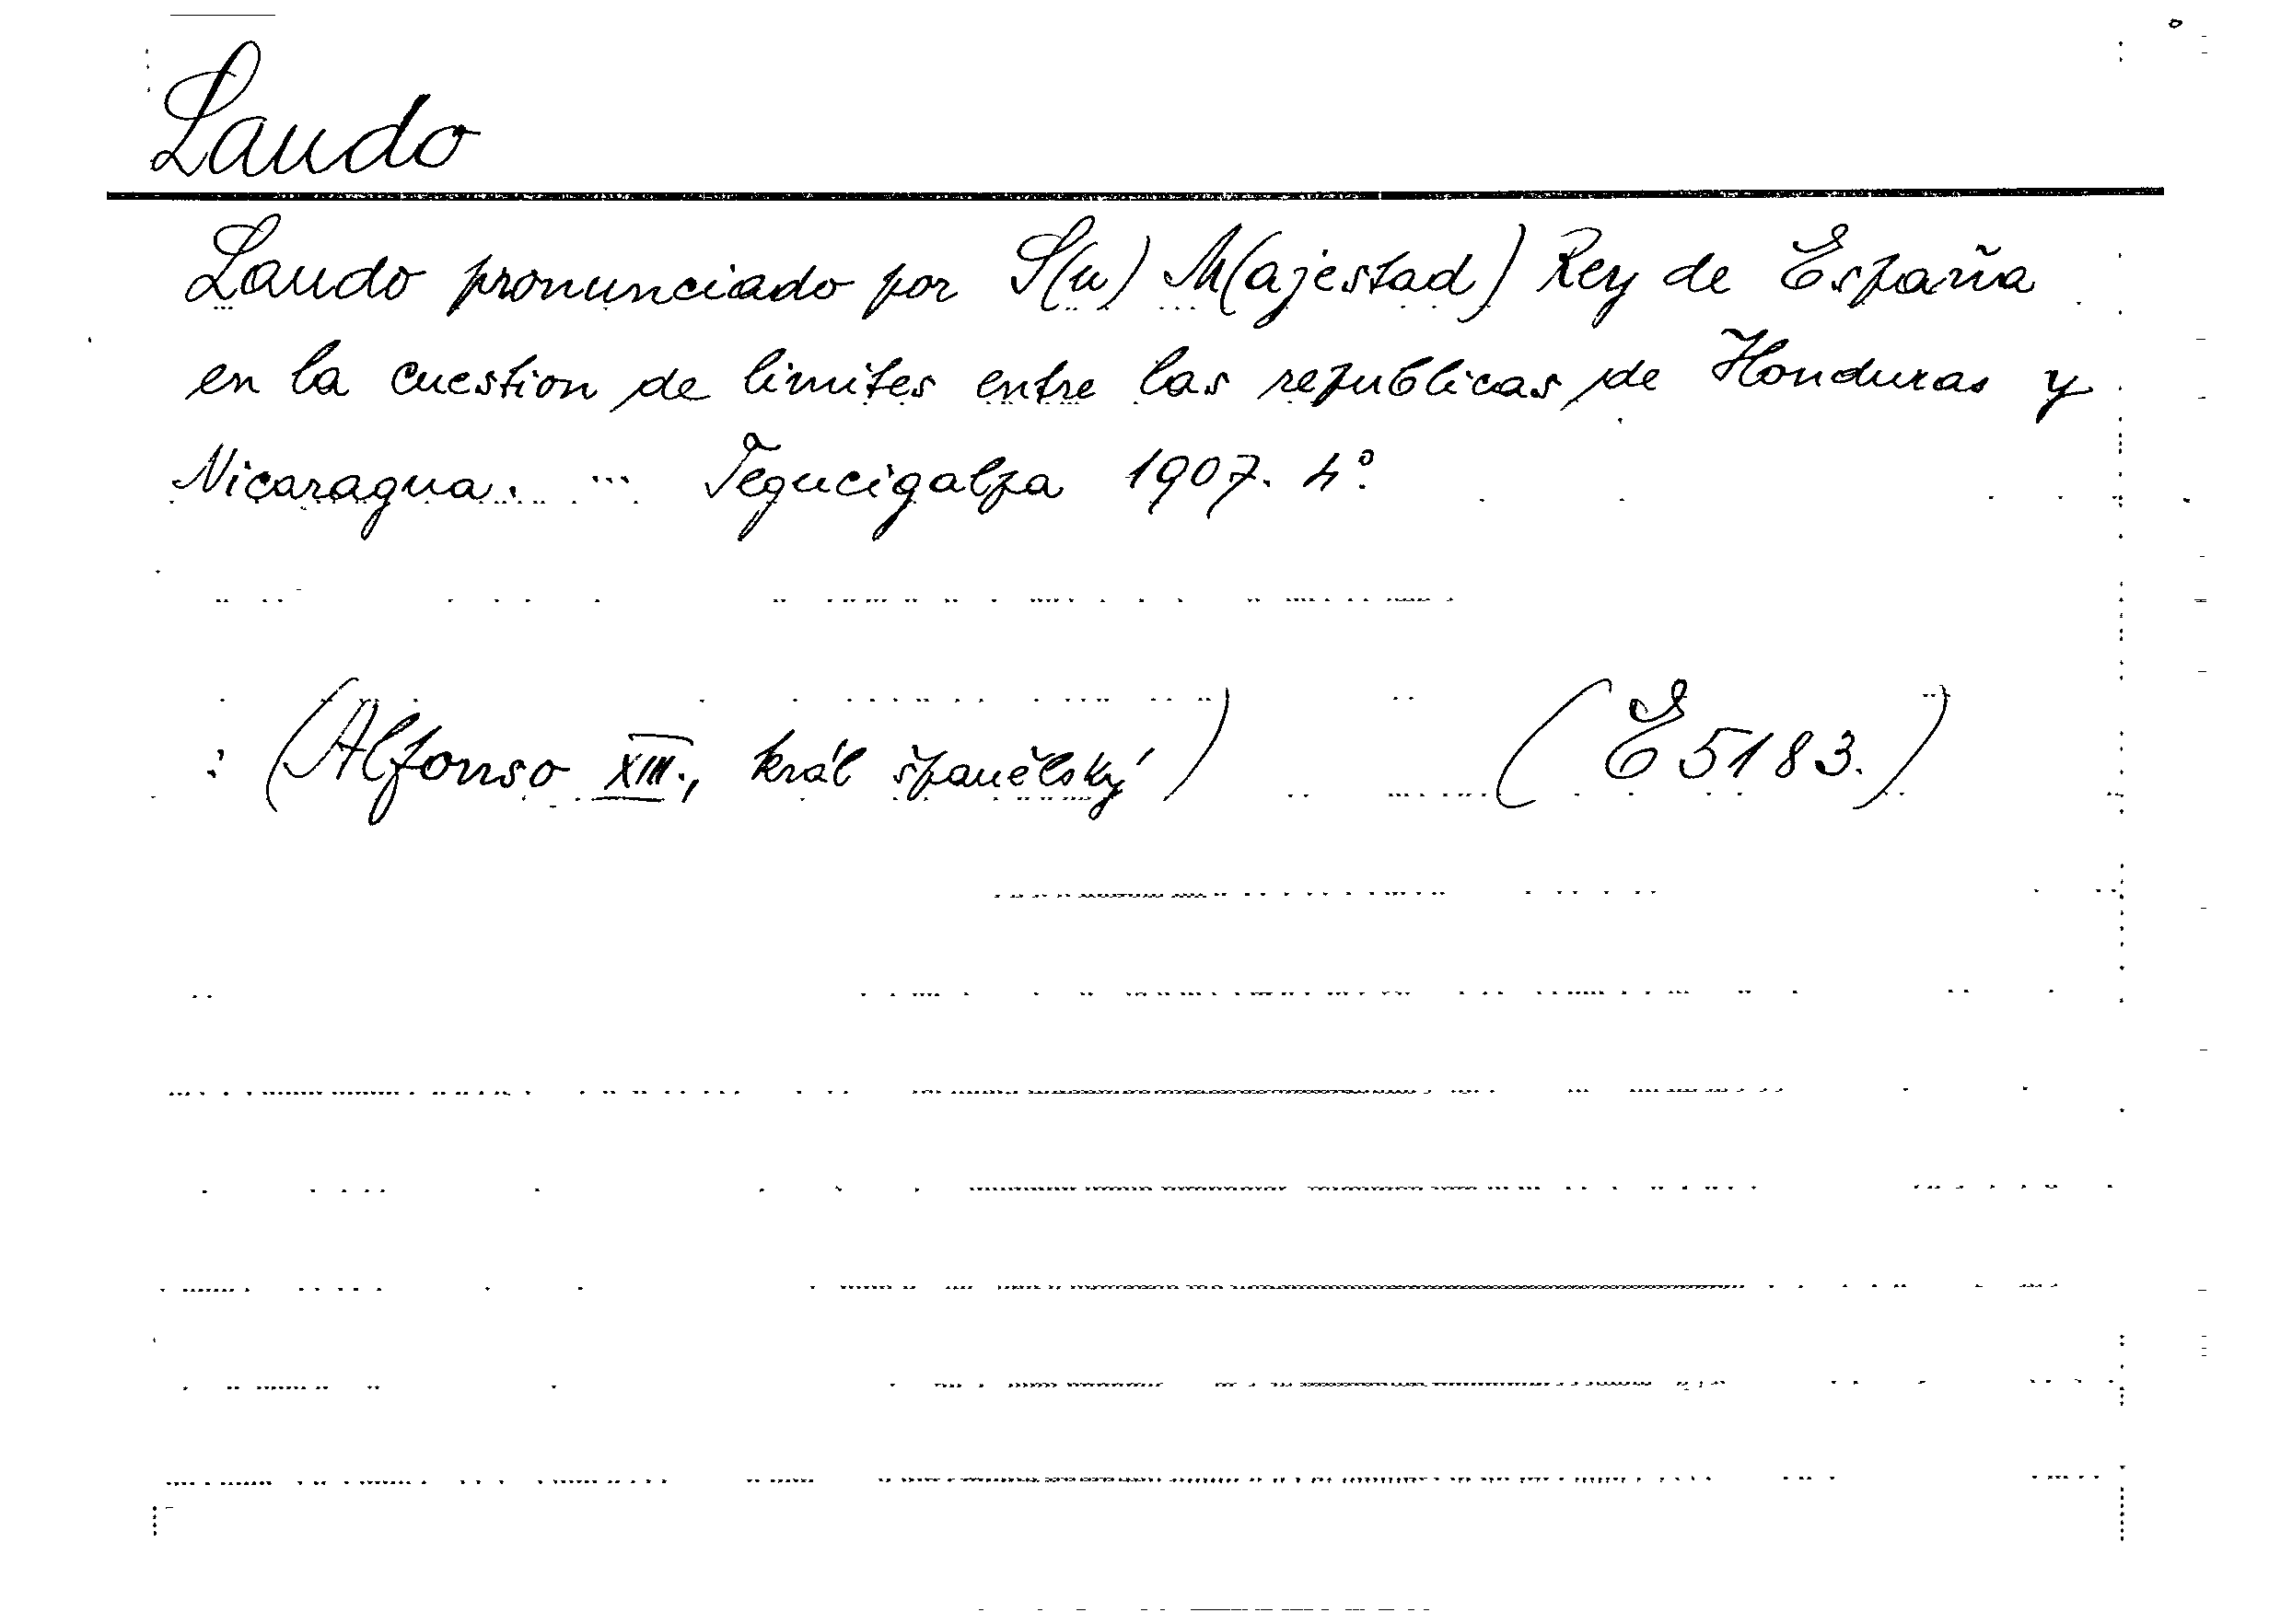 Laudo
Laudo pronunciado por S(u) M(ajestad) Rey de España
en la cuestion de limites entre las republicas de Honduras y
Nicaragua. ... Tegucigalpa 1907. 4°.
: (Alfonso XIII., král španělský) (E 5183.)